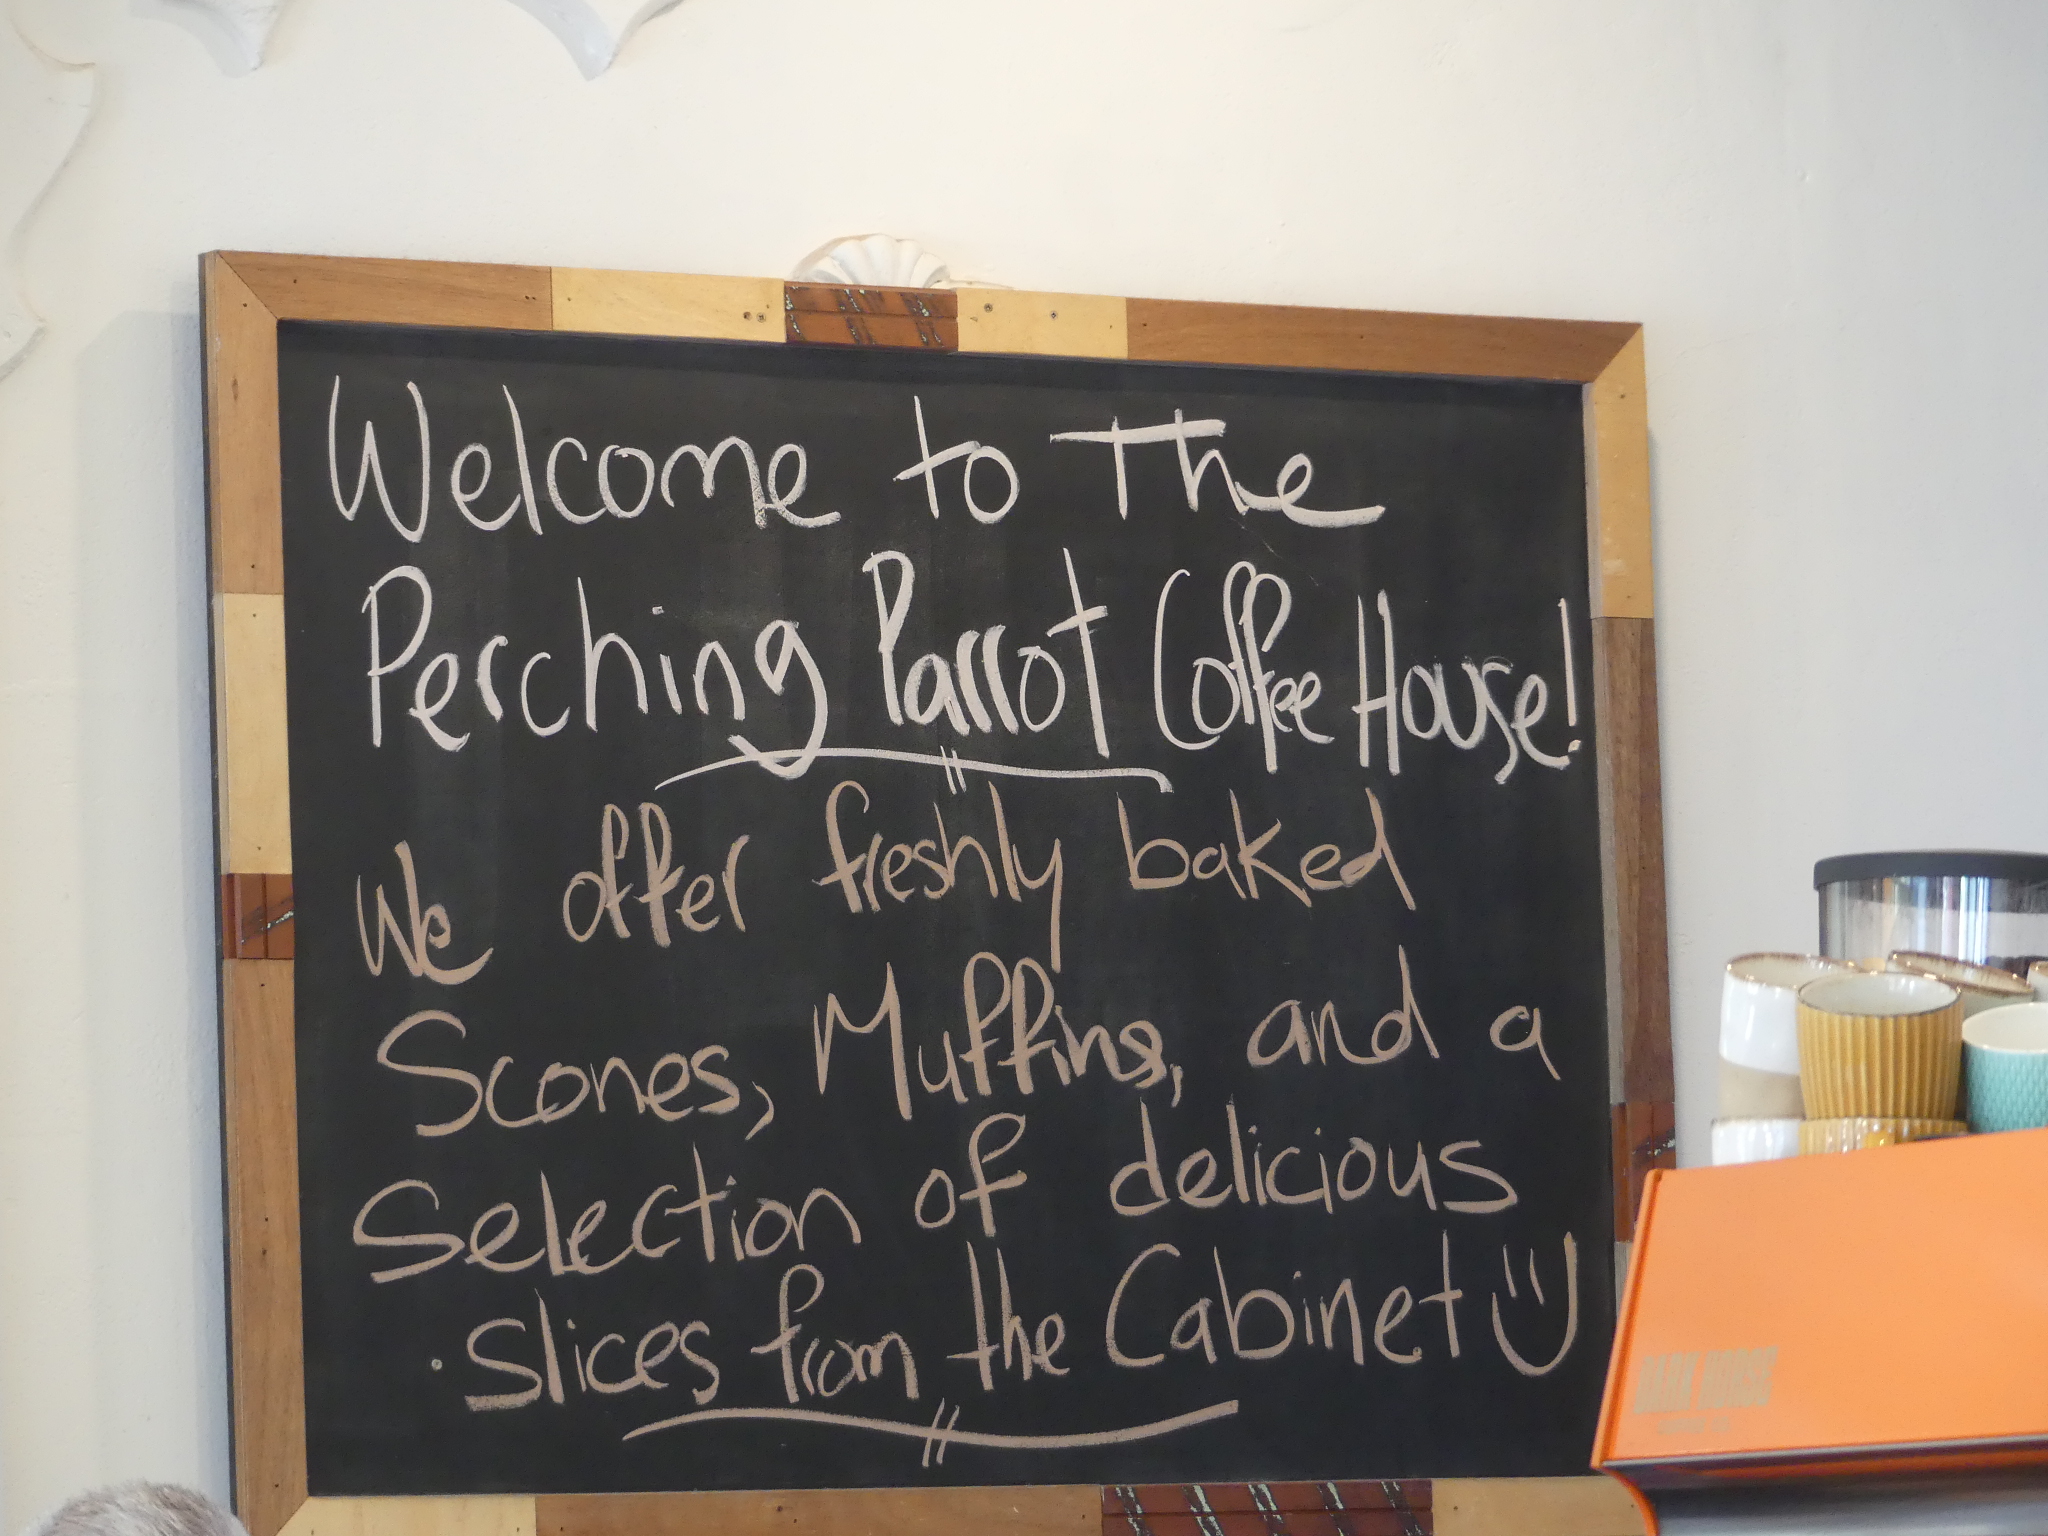 Welcome to The
Perching Parrot Coffee House!
We offer freshly baked
Scones, Muffins, and a
Selection of delicious
Slices from the Cabinet
DARK HORSE